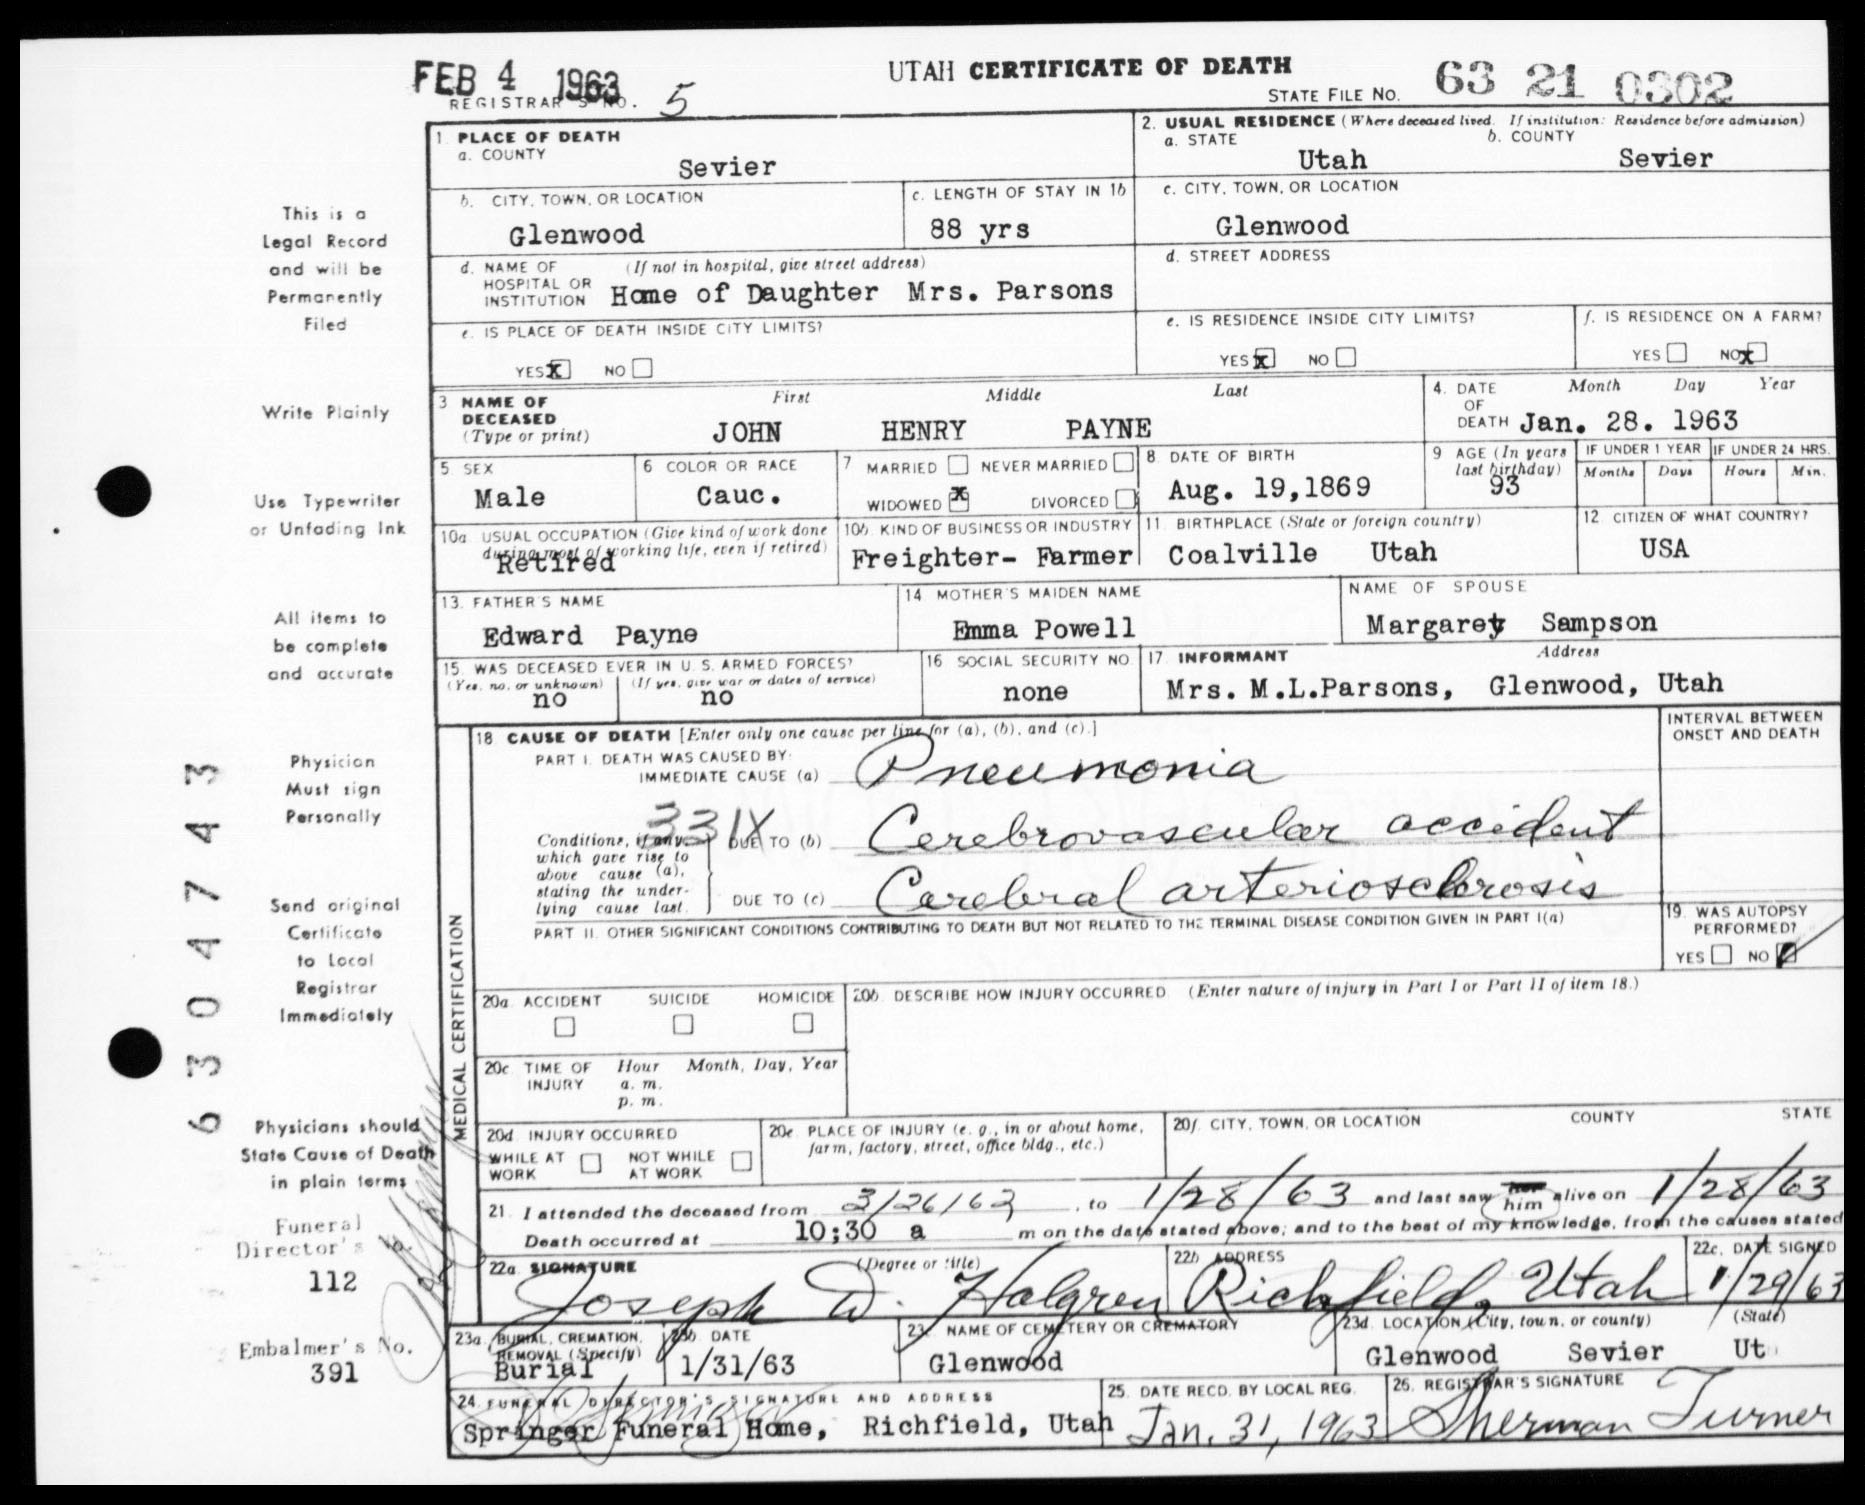 FEB 4 1963
UTAH CERTIFICATE OF DEATH
REGISTRAR'S NO. 5
STATE FILE NO. 63 21 0302
1. PLACE OF DEATH
a. COUNTY
Sevier
2. USUAL RESIDENCE (Where deceased lived. If institution: Residence before admission)
a. STATE b. COUNTY
Utah Sevier
b. CITY, TOWN, OR LOCATION
Glenwood
c. LENGTH OF STAY IN 1b
88 yrs
c. CITY, TOWN, OR LOCATION
Glenwood
d. NAME OF HOSPITAL OR INSTITUTION (If not in hospital, give street address)
Home of Daughter Mrs. Parsons
d. STREET ADDRESS
e. IS PLACE OF DEATH INSIDE CITY LIMITS?
YES X NO
e. IS RESIDENCE INSIDE CITY LIMITS?
YES X NO
f. IS RESIDENCE ON A FARM?
YES NO X
3 NAME OF DECEASED (Type or print)
First Middle Last
JOHN HENRY PAYNE
4. DATE OF DEATH Month Day Year
Jan. 28. 1963
5 SEX
Male
6 COLOR OR RACE
Cauc.
7 MARRIED NEVER MARRIED
WIDOWED X DIVORCED
8 DATE OF BIRTH
Aug. 19,1869
9 AGE (In years last birthday)
93
IF UNDER 1 YEAR IF UNDER 24 HRS.
Months Days Hours Min.
10a USUAL OCCUPATION (Give kind of work done during most of working life, even if retired)
Retired
10b. KIND OF BUSINESS OR INDUSTRY
Freighter- Farmer
11. BIRTHPLACE (State or foreign country)
Coalville Utah
12 CITIZEN OF WHAT COUNTRY?
USA
13. FATHER'S NAME
Edward Payne
14 MOTHER'S MAIDEN NAME
Emma Powell
NAME OF SPOUSE
Margaret Sampson
15. WAS DECEASED EVER IN U.S. ARMED FORCES?
(Yes, no, or unknown) (If yes, give war or dates of service)
no no
16 SOCIAL SECURITY NO.
none
17. INFORMANT Address
Mrs. M.L.Parsons, Glenwood, Utah
MEDICAL CERTIFICATION
18. CAUSE OF DEATH [Enter only one cause per line for (a), (b), and (c).]
INTERVAL BETWEEN ONSET AND DEATH
PART I. DEATH WAS CAUSED BY:
IMMEDIATE CAUSE (a) Pneumonia
331X
Conditions, if any, which gave rise to above cause (a), stating the underlying cause last.
DUE TO (b) Cerebrovascular accident
DUE TO (c) Cerebral arteriosclerosis
PART II. OTHER SIGNIFICANT CONDITIONS CONTRIBUTING TO DEATH BUT NOT RELATED TO THE TERMINAL DISEASE CONDITION GIVEN IN PART I(a)
19. WAS AUTOPSY PERFORMED?
YES NO
20a. ACCIDENT SUICIDE HOMICIDE
20b. DESCRIBE HOW INJURY OCCURRED. (Enter nature of injury in Part I or Part II of item 18.)
20c TIME OF INJURY Hour Month, Day, Year
a. m.
p. m.
20d. INJURY OCCURRED
WHILE AT WORK NOT WHILE AT WORK
20e PLACE OF INJURY (e. g., in or about home, farm, factory, street, office bldg., etc.)
20f. CITY, TOWN, OR LOCATION COUNTY STATE
21. I attended the deceased from 3/26/63, to 1/28/63 and last saw her him alive on 1/28/63
Death occurred at 10;30 a m on the date stated above; and to the best of my knowledge, from the causes stated
22a. SIGNATURE (Degree or title)
Joseph W. Halgren
22b ADDRESS
Richfield, Utah
22c. DATE SIGNED
1/29/63
23a. BURIAL, CREMATION, REMOVAL (Specify)
Burial
23b. DATE
1/31/63
23. NAME OF CEMETERY OR CREMATORY
Glenwood
23d. LOCATION (City, town. or county) (State)
Glenwood Sevier Ut
24. FUNERAL DIRECTOR'S SIGNATURE AND ADDRESS
Springer Funeral Home, Richfield, Utah
25. DATE RECD. BY LOCAL REG.
Jan. 31, 1963
26. REGISTRAR'S SIGNATURE
Sherman Turner
This is a
Legal Record
and will be
Permanently
Filed
Write Plainly
Use Typewriter
or Unfading Ink
All items to
be complete
and accurate
Physician
Must sign
Personally
Send original
Certificate
to Local
Registrar
Immediately
Physicians should
State Cause of Death
in plain terms
Funeral
Director's No.
112
Embalmer's No.
391
6304743